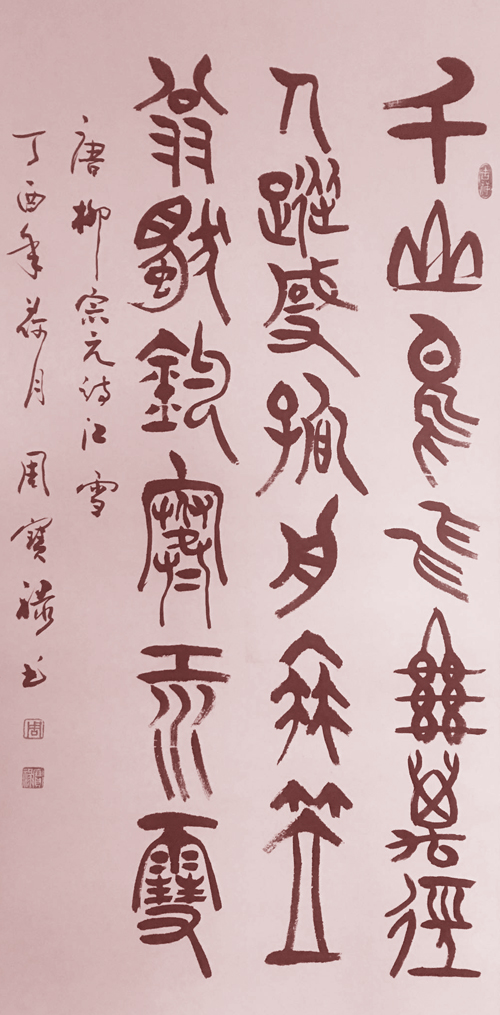 千山鳥飛絕萬徑
人蹤滅孤舟蓑笠
翁獨釣寒江雪
唐柳宗元詩江雪
丁酉年荷月 周寶祿书
周